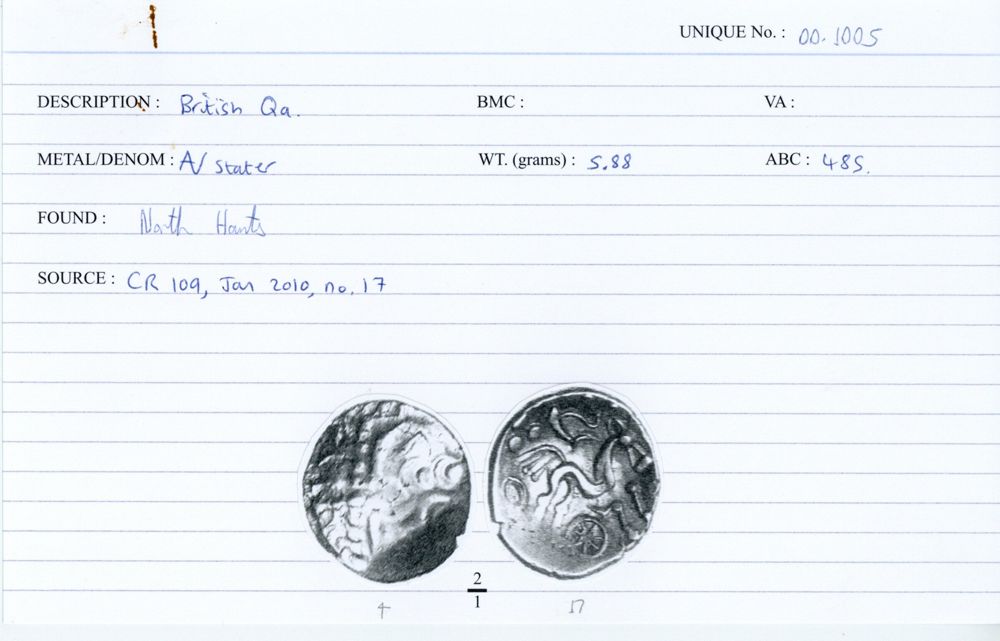 UNIQUE No. : 00.1005
DESCRIPTION : British Qa. BMC : VA :
METAL/DENOM : A/ stater WT. (grams) : 5.88 ABC : 485.
FOUND : North Hants
SOURCE : CR 109, Jan 2010, no. 17
2
1